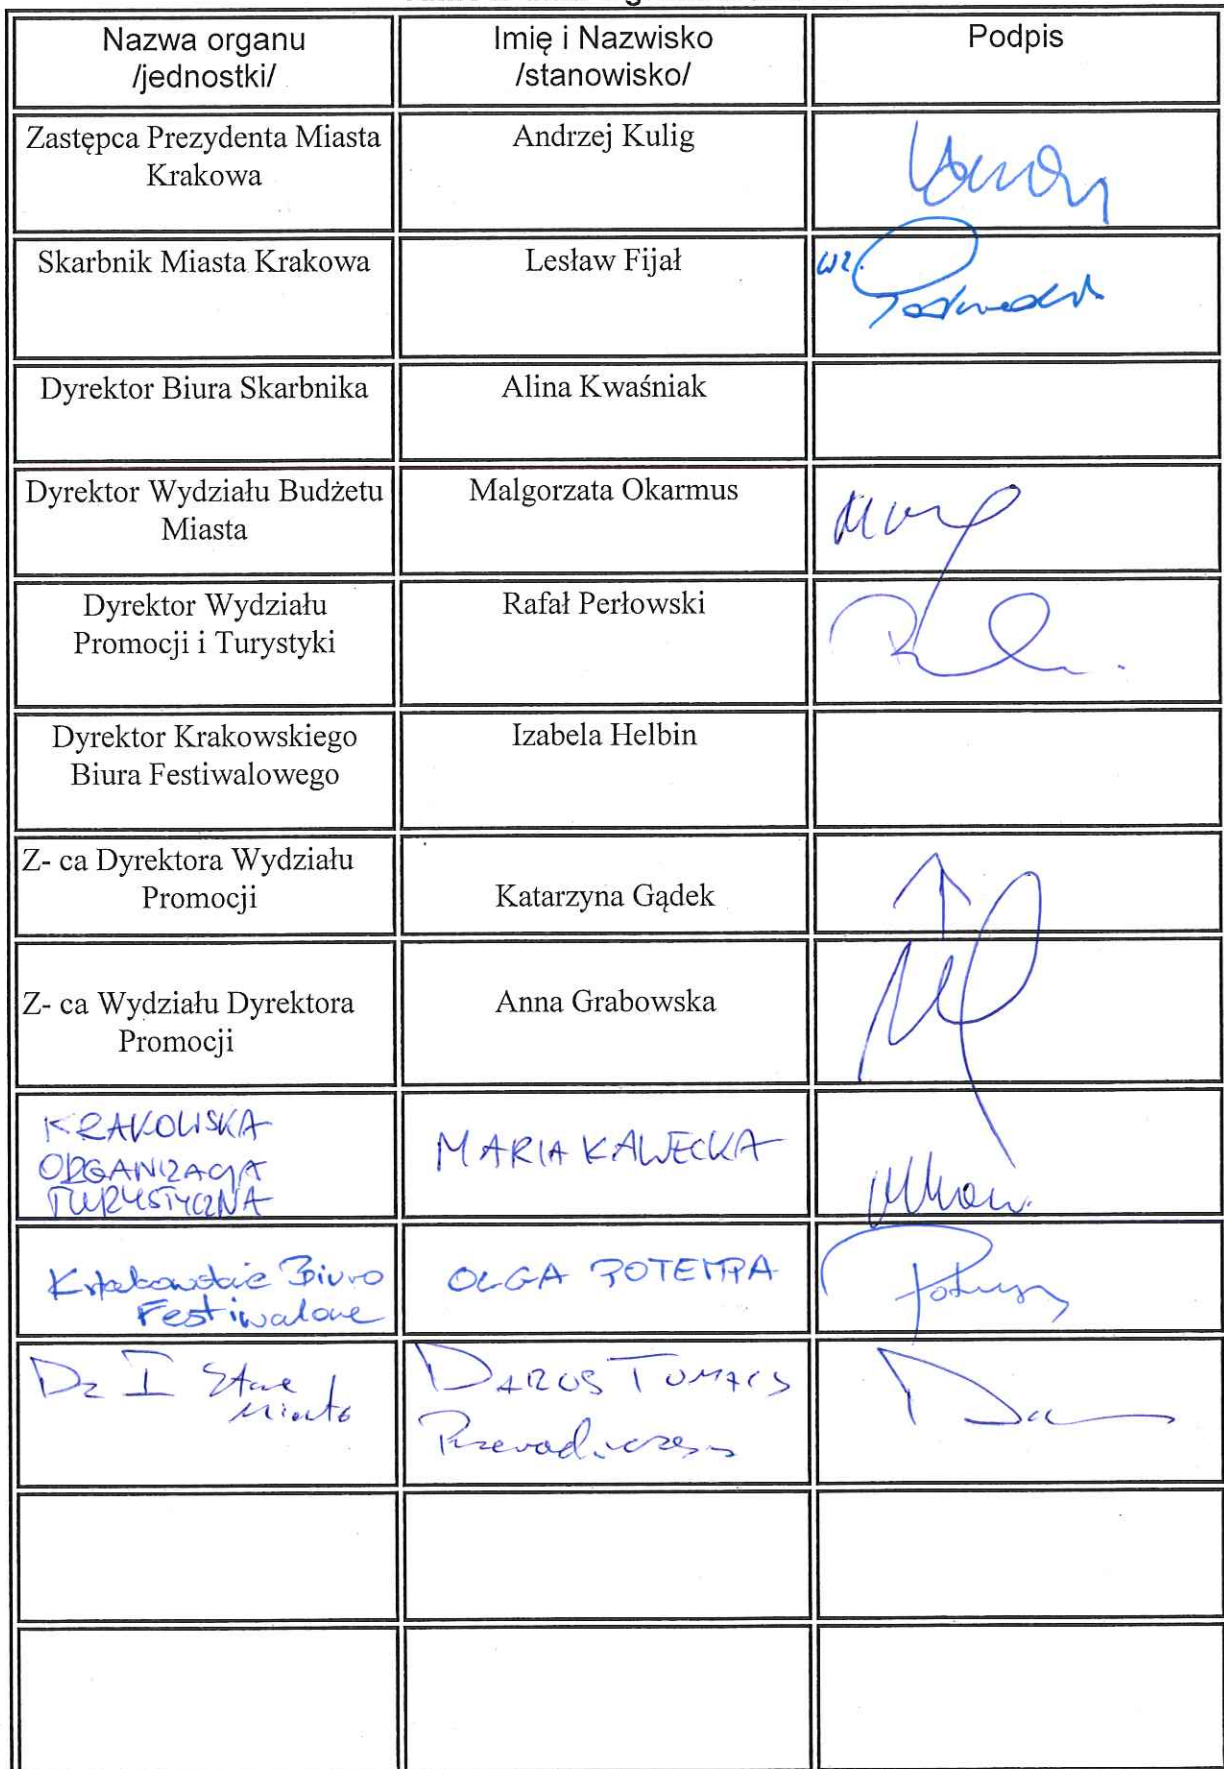 Nazwa organu
/jednostki/
Imię i Nazwisko
/stanowisko/
Podpis
Zastępca Prezydenta Miasta
Krakowa
Andrzej Kulig
Skarbnik Miasta Krakowa
Lesław Fijał
wz.
Dyrektor Biura Skarbnika
Alina Kwaśniak
Dyrektor Wydziału Budżetu
Miasta
Malgorzata Okarmus
Dyrektor Wydziału
Promocji i Turystyki
Rafał Perłowski
Dyrektor Krakowskiego
Biura Festiwalowego
Izabela Helbin
Z- ca Dyrektora Wydziału
Promocji
Katarzyna Gądek
Z- ca Wydziału Dyrektora
Promocji
Anna Grabowska
KRAKOWSKA
ORGANIZACJA
TURYSTYCZNA
MARIA KAWECKA
Krakowskie Biuro
Festiwalowe
OLGA POTEMPA
Dz I Stare
Miasto